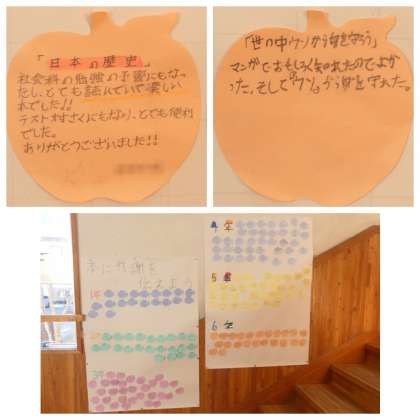 「日本の歴史」
社会科の勉強の予習にもなっ
たし、とても読んでいて楽しい
本でした!!
テストもすぐにもなり、とても便利
でした。
ありがとうございました!!
「世の中のウソから身を守ろう」
マンガでおもしろく知れたのでよか
った、そして「ウソ」から身を守れた。
本に感謝を
伝えよう
1年
2年
3年
4年
5年
6年